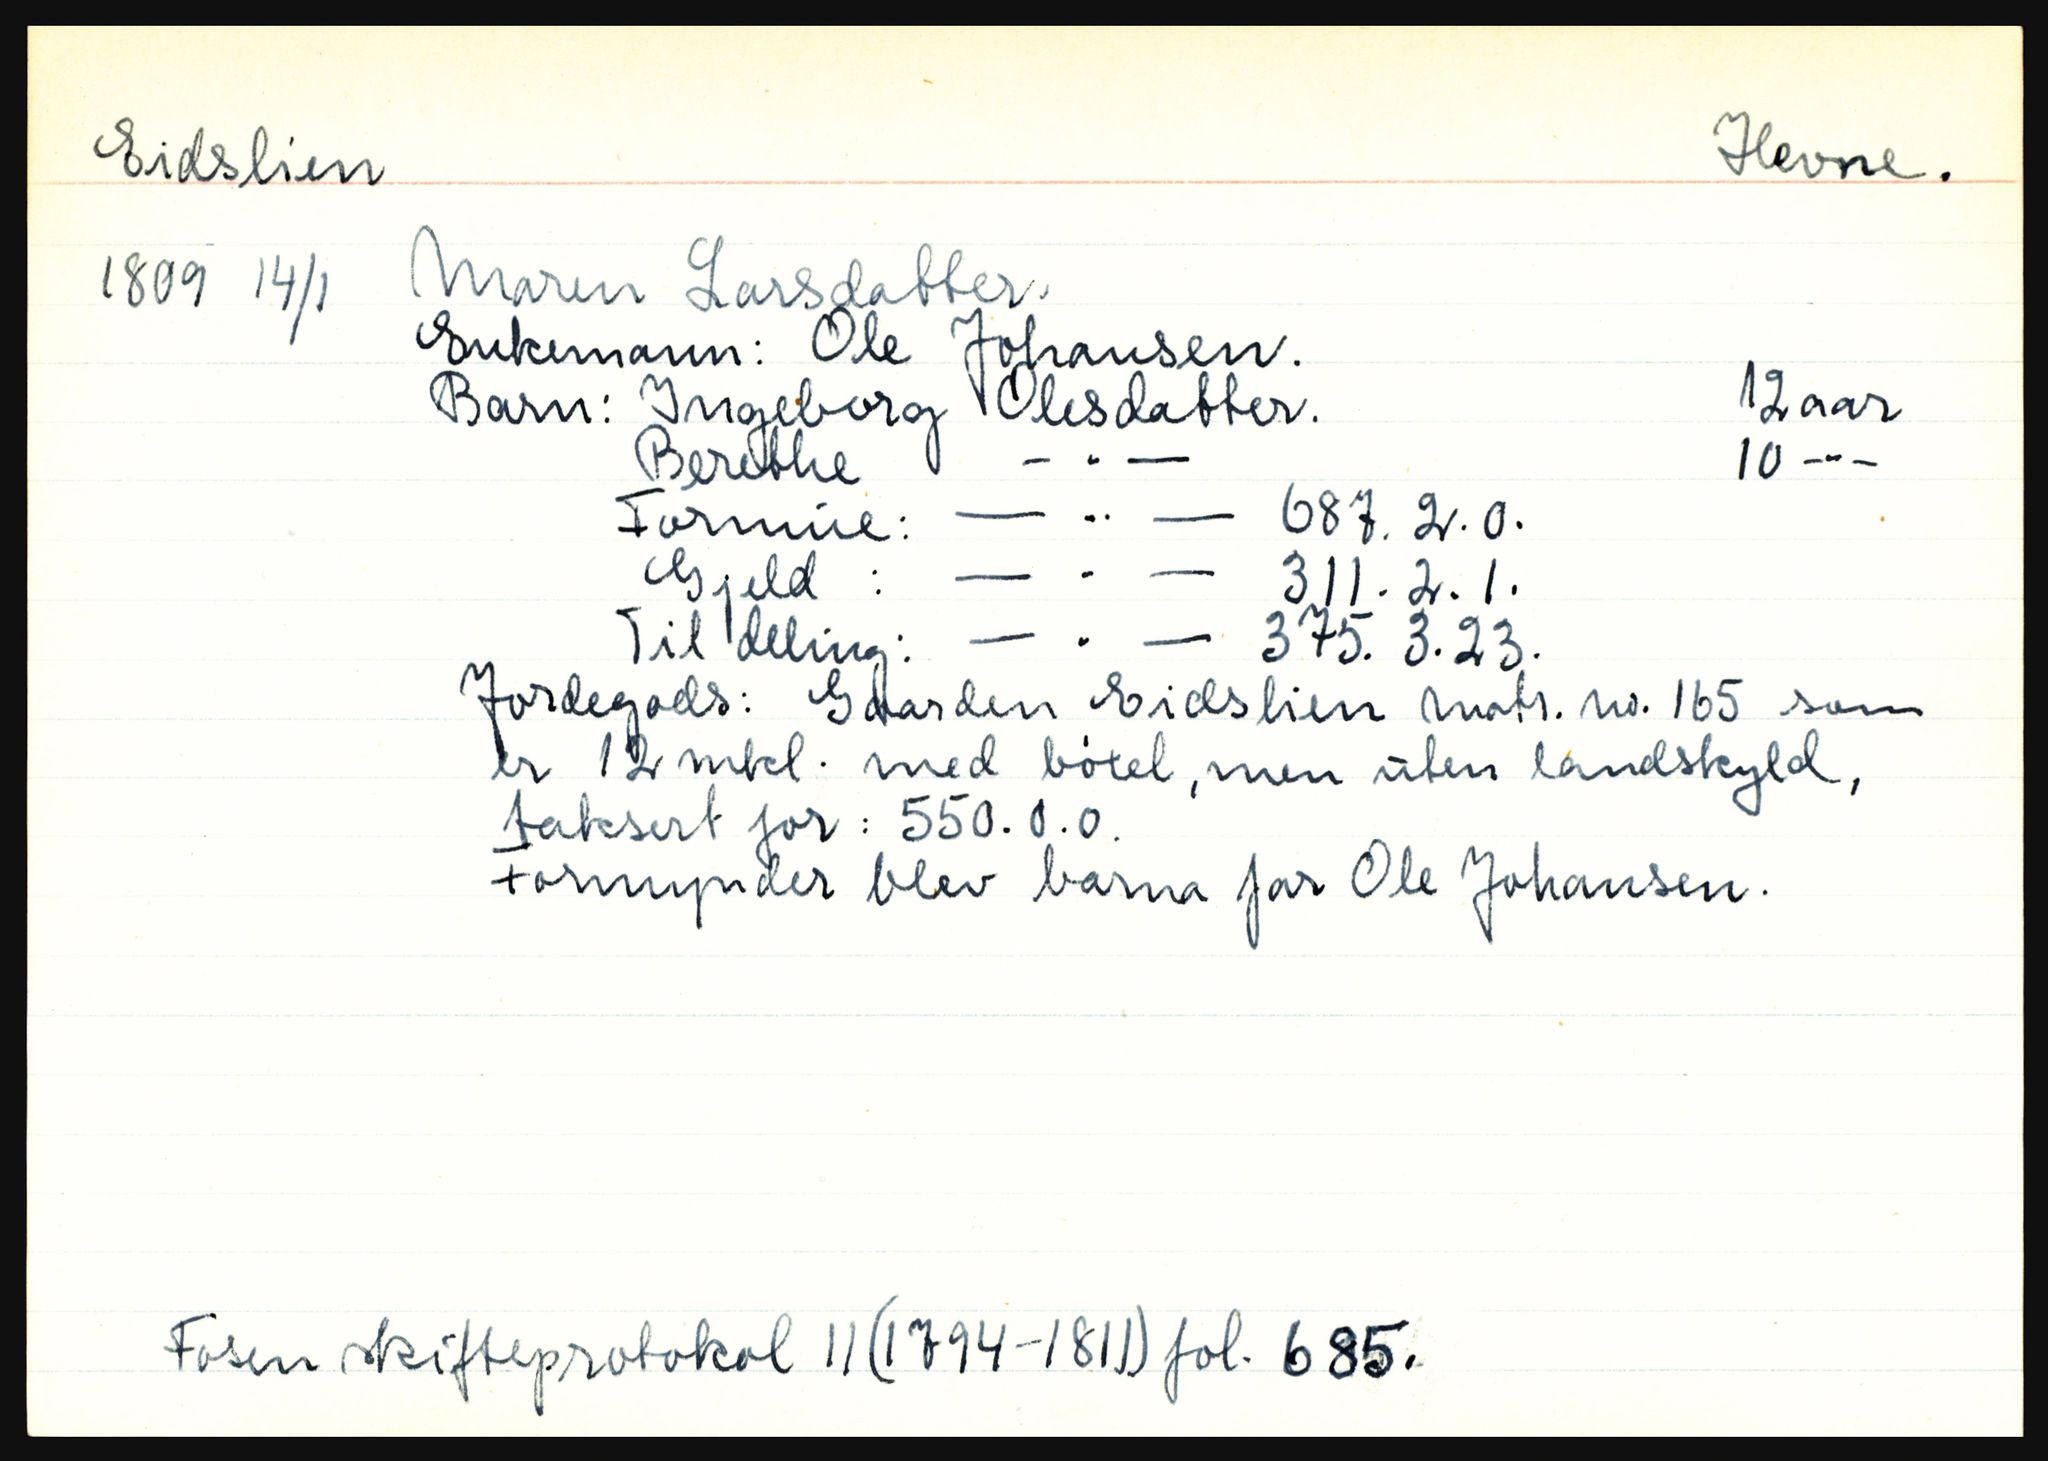 Eidslien Hevne.
1809 14/1 Maren Larsdatter.
Enkemann: Ole Johansen.
Barn: Ingeborg Olesdatter. 12 aar
Berethe — " — 10 -"-
Formue: — " — 687. 2. 0.
Gjeld : — " — 311. 2. 1.
Til deling: — " — 375. 3. 23.
Jordegods: Gaarden Eidslien matr. no. 165 som
er 12 mkl. med bøxel, men uten landskyld,
taksert for: 550. 0. 0.
Formynder blev barna far Ole Johansen.
Fosen skifteprotokol 11 (1794-1811) fol. 685.